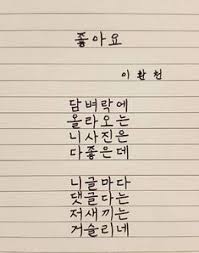 좋아요
이환천
담벼락에
올라오는
니사진은
다좋은데
니글마다
댓글다는
저새끼는
거슬리네